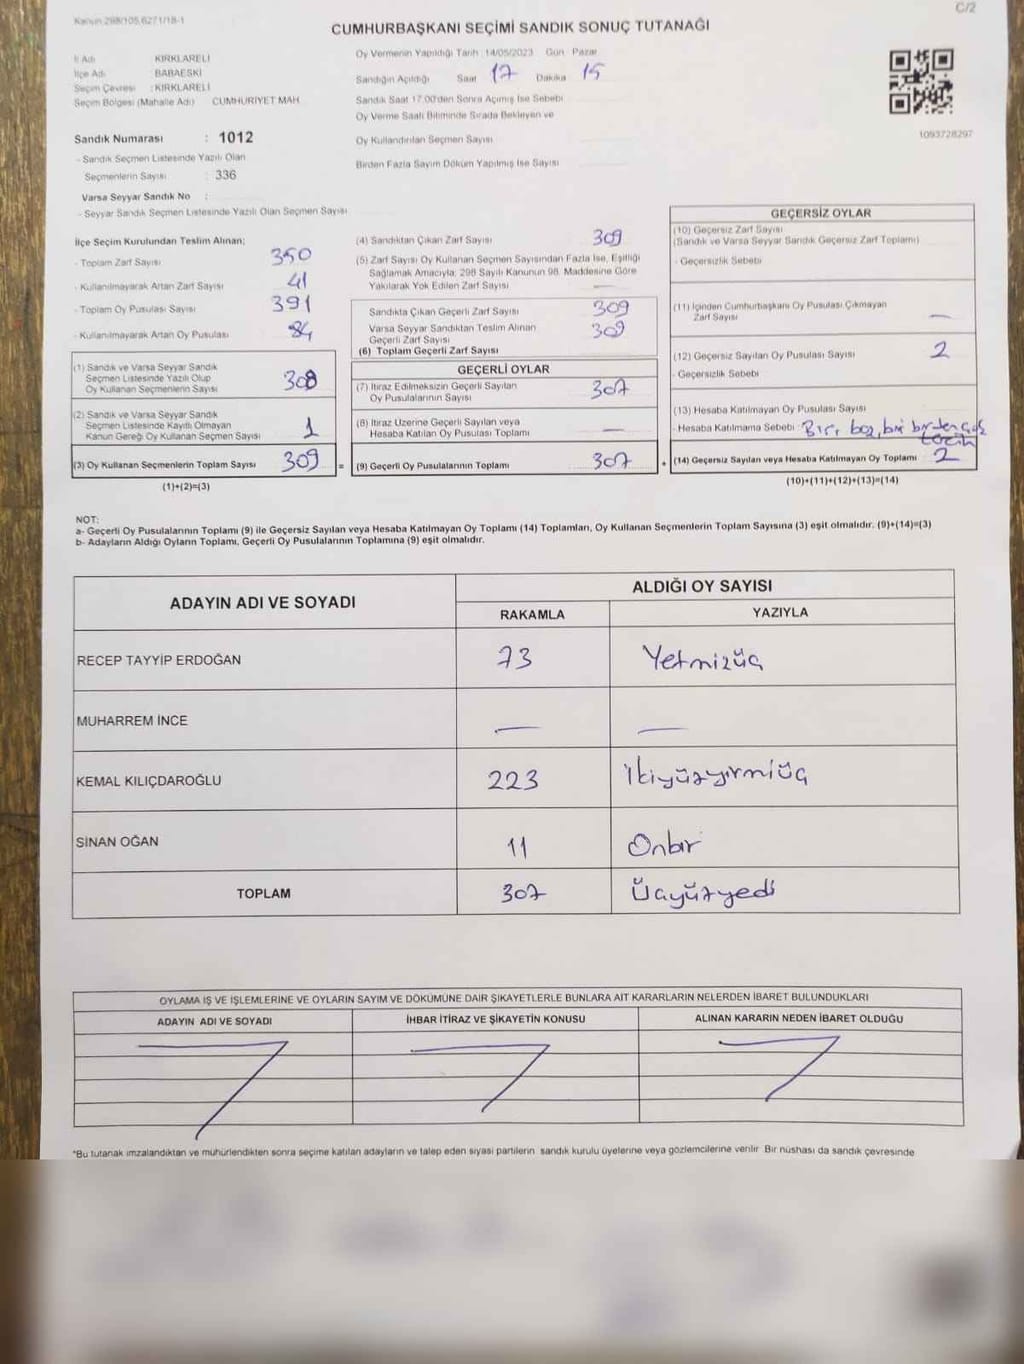 Kanun 298/105,6271/18-1
C/2
CUMHURBAŞKANI SEÇİMİ SANDIK SONUÇ TUTANAĞI
İl Adı KIRKLARELİ
İlçe Adı BABAESKİ
Seçim Çevresi :KIRKLARELİ
Seçim Bölgesi (Mahalle Adı) CUMHURİYET MAH.
Sandık Numarası : 1012
- Sandık Seçmen Listesinde Yazılı Olan
Seçmenlerin Sayısı : 336
Varsa Seyyar Sandık No :
- Seyyar Sandık Seçmen Listesinde Yazılı Olan Seçmen Sayısı
Oy Vermenin Yapıldığı Tarih 14/05/2023 Gün Pazar
Sandığın Açıldığı Saat 17 Dakika 15
Sandık Saat 17.00'den Sonra Açılmış İse Sebebi
Oy Verme Saati Bitiminde Sırada Bekleyen ve
Oy Kullandırılan Seçmen Sayısı
Birden Fazla Sayım Döküm Yapılmış İse Sayısı
1093728297
İlçe Seçim Kurulundan Teslim Alınan;
- Toplam Zarf Sayısı 350
- Kullanılmayarak Artan Zarf Sayısı 41
- Toplam Oy Pusulası Sayısı 391
- Kullanılmayarak Artan Oy Pusulası 84
(1) Sandık ve Varsa Seyyar Sandık
Seçmen Listesinde Yazılı Olup
Oy Kullanan Seçmenlerin Sayısı 308
(2) Sandık ve Varsa Seyyar Sandık
Seçmen Listesinde Kayıtlı Olmayan
Kanun Gereği Oy Kullanan Seçmen Sayısı 1
(3) Oy Kullanan Seçmenlerin Toplam Sayısı 309 =
(1)+(2)=(3)
(4) Sandıktan Çıkan Zarf Sayısı 309
(5) Zarf Sayısı Oy Kullanan Seçmen Sayısından Fazla İse, Eşitliği
Sağlamak Amacıyla; 298 Sayılı Kanunun 98. Maddesine Göre
Yakılarak Yok Edilen Zarf Sayısı —
Sandıkta Çıkan Geçerli Zarf Sayısı 309
Varsa Seyyar Sandıktan Teslim Alınan
Geçerli Zarf Sayısı 309
(6) Toplam Geçerli Zarf Sayısı
GEÇERLİ OYLAR
(7) İtiraz Edilmeksizin Geçerli Sayılan
Oy Pusulalarının Sayısı 307
(8) İtiraz Üzerine Geçerli Sayılan veya
Hesaba Katılan Oy Pusulası Toplamı —
(9) Geçerli Oy Pusulalarının Toplamı 307 +
GEÇERSİZ OYLAR
(10) Geçersiz Zarf Sayısı
(Sandık ve Varsa Seyyar Sandık Geçersiz Zarf Toplamı)
- Geçersizlik Sebebi
(11) İçinden Cumhurbaşkanı Oy Pusulası Çıkmayan
Zarf Sayısı —
(12) Geçersiz Sayılan Oy Pusulası Sayısı 2
- Geçersizlik Sebebi
(13) Hesaba Katılmayan Oy Pusulası Sayısı
- Hesaba Katılmama Sebebi Biri boş, biri birden çok
tercih
(14) Geçersiz Sayılan veya Hesaba Katılmayan Oy Toplamı 2
(10)+(11)+(12)+(13)=(14)
NOT:
a- Geçerli Oy Pusulalarının Toplamı (9) ile Geçersiz Sayılan veya Hesaba Katılmayan Oy Toplamı (14) Toplamları, Oy Kullanan Seçmenlerin Toplam Sayısına (3) eşit olmalıdır. (9)+(14)=(3)
b- Adayların Aldığı Oyların Toplamı, Geçerli Oy Pusulalarının Toplamına (9) eşit olmalıdır.
ADAYIN ADI VE SOYADI
ALDIĞI OY SAYISI
RAKAMLA YAZIYLA
RECEP TAYYİP ERDOĞAN 73 Yetmişüç
MUHARREM İNCE — —
KEMAL KILIÇDAROĞLU 223 İkiyüzyirmiüç
SİNAN OĞAN 11 Onbir
TOPLAM 307 Üçyüzyedi
OYLAMA İŞ VE İŞLEMLERİNE VE OYLARIN SAYIM VE DÖKÜMÜNE DAİR ŞİKAYETLERLE BUNLARA AİT KARARLARIN NELERDEN İBARET BULUNDUKLARI
ADAYIN ADI VE SOYADI İHBAR İTİRAZ VE ŞİKAYETİN KONUSU ALINAN KARARIN NEDEN İBARET OLDUĞU
*Bu tutanak imzalandıktan ve mühürlendikten sonra seçime katılan adayların ve talep eden siyasi partilerin sandık kurulu üyelerine veya gözlemcilerine verilir. Bir nüshası da sandık çevresinde